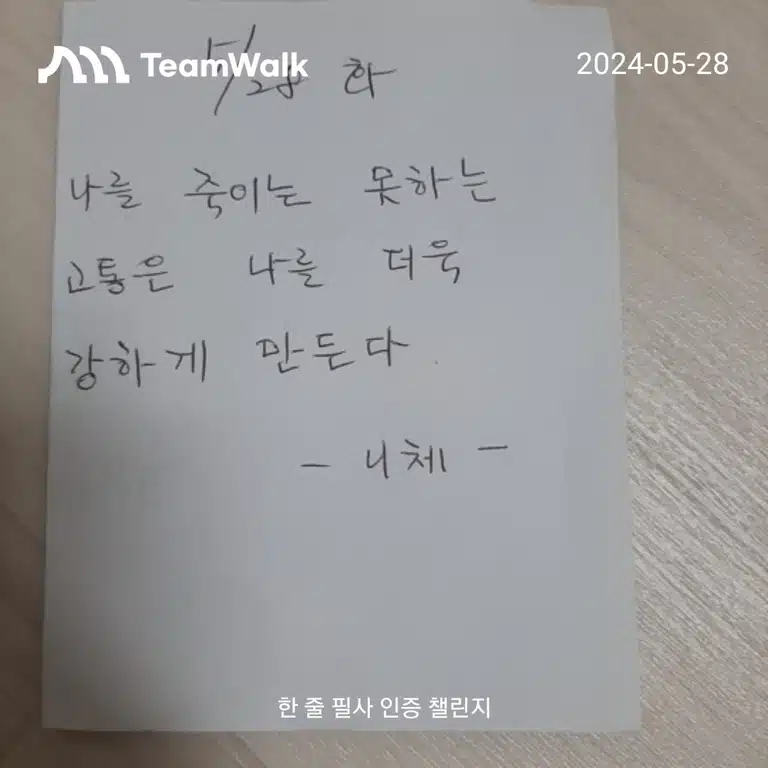 TeamWalk 2024-05-28
5/28 화
나를 죽이는 못하는
고통은 나를 더욱
강하게 만든다.
- 니체 -
한 줄 필사 인증 챌린지